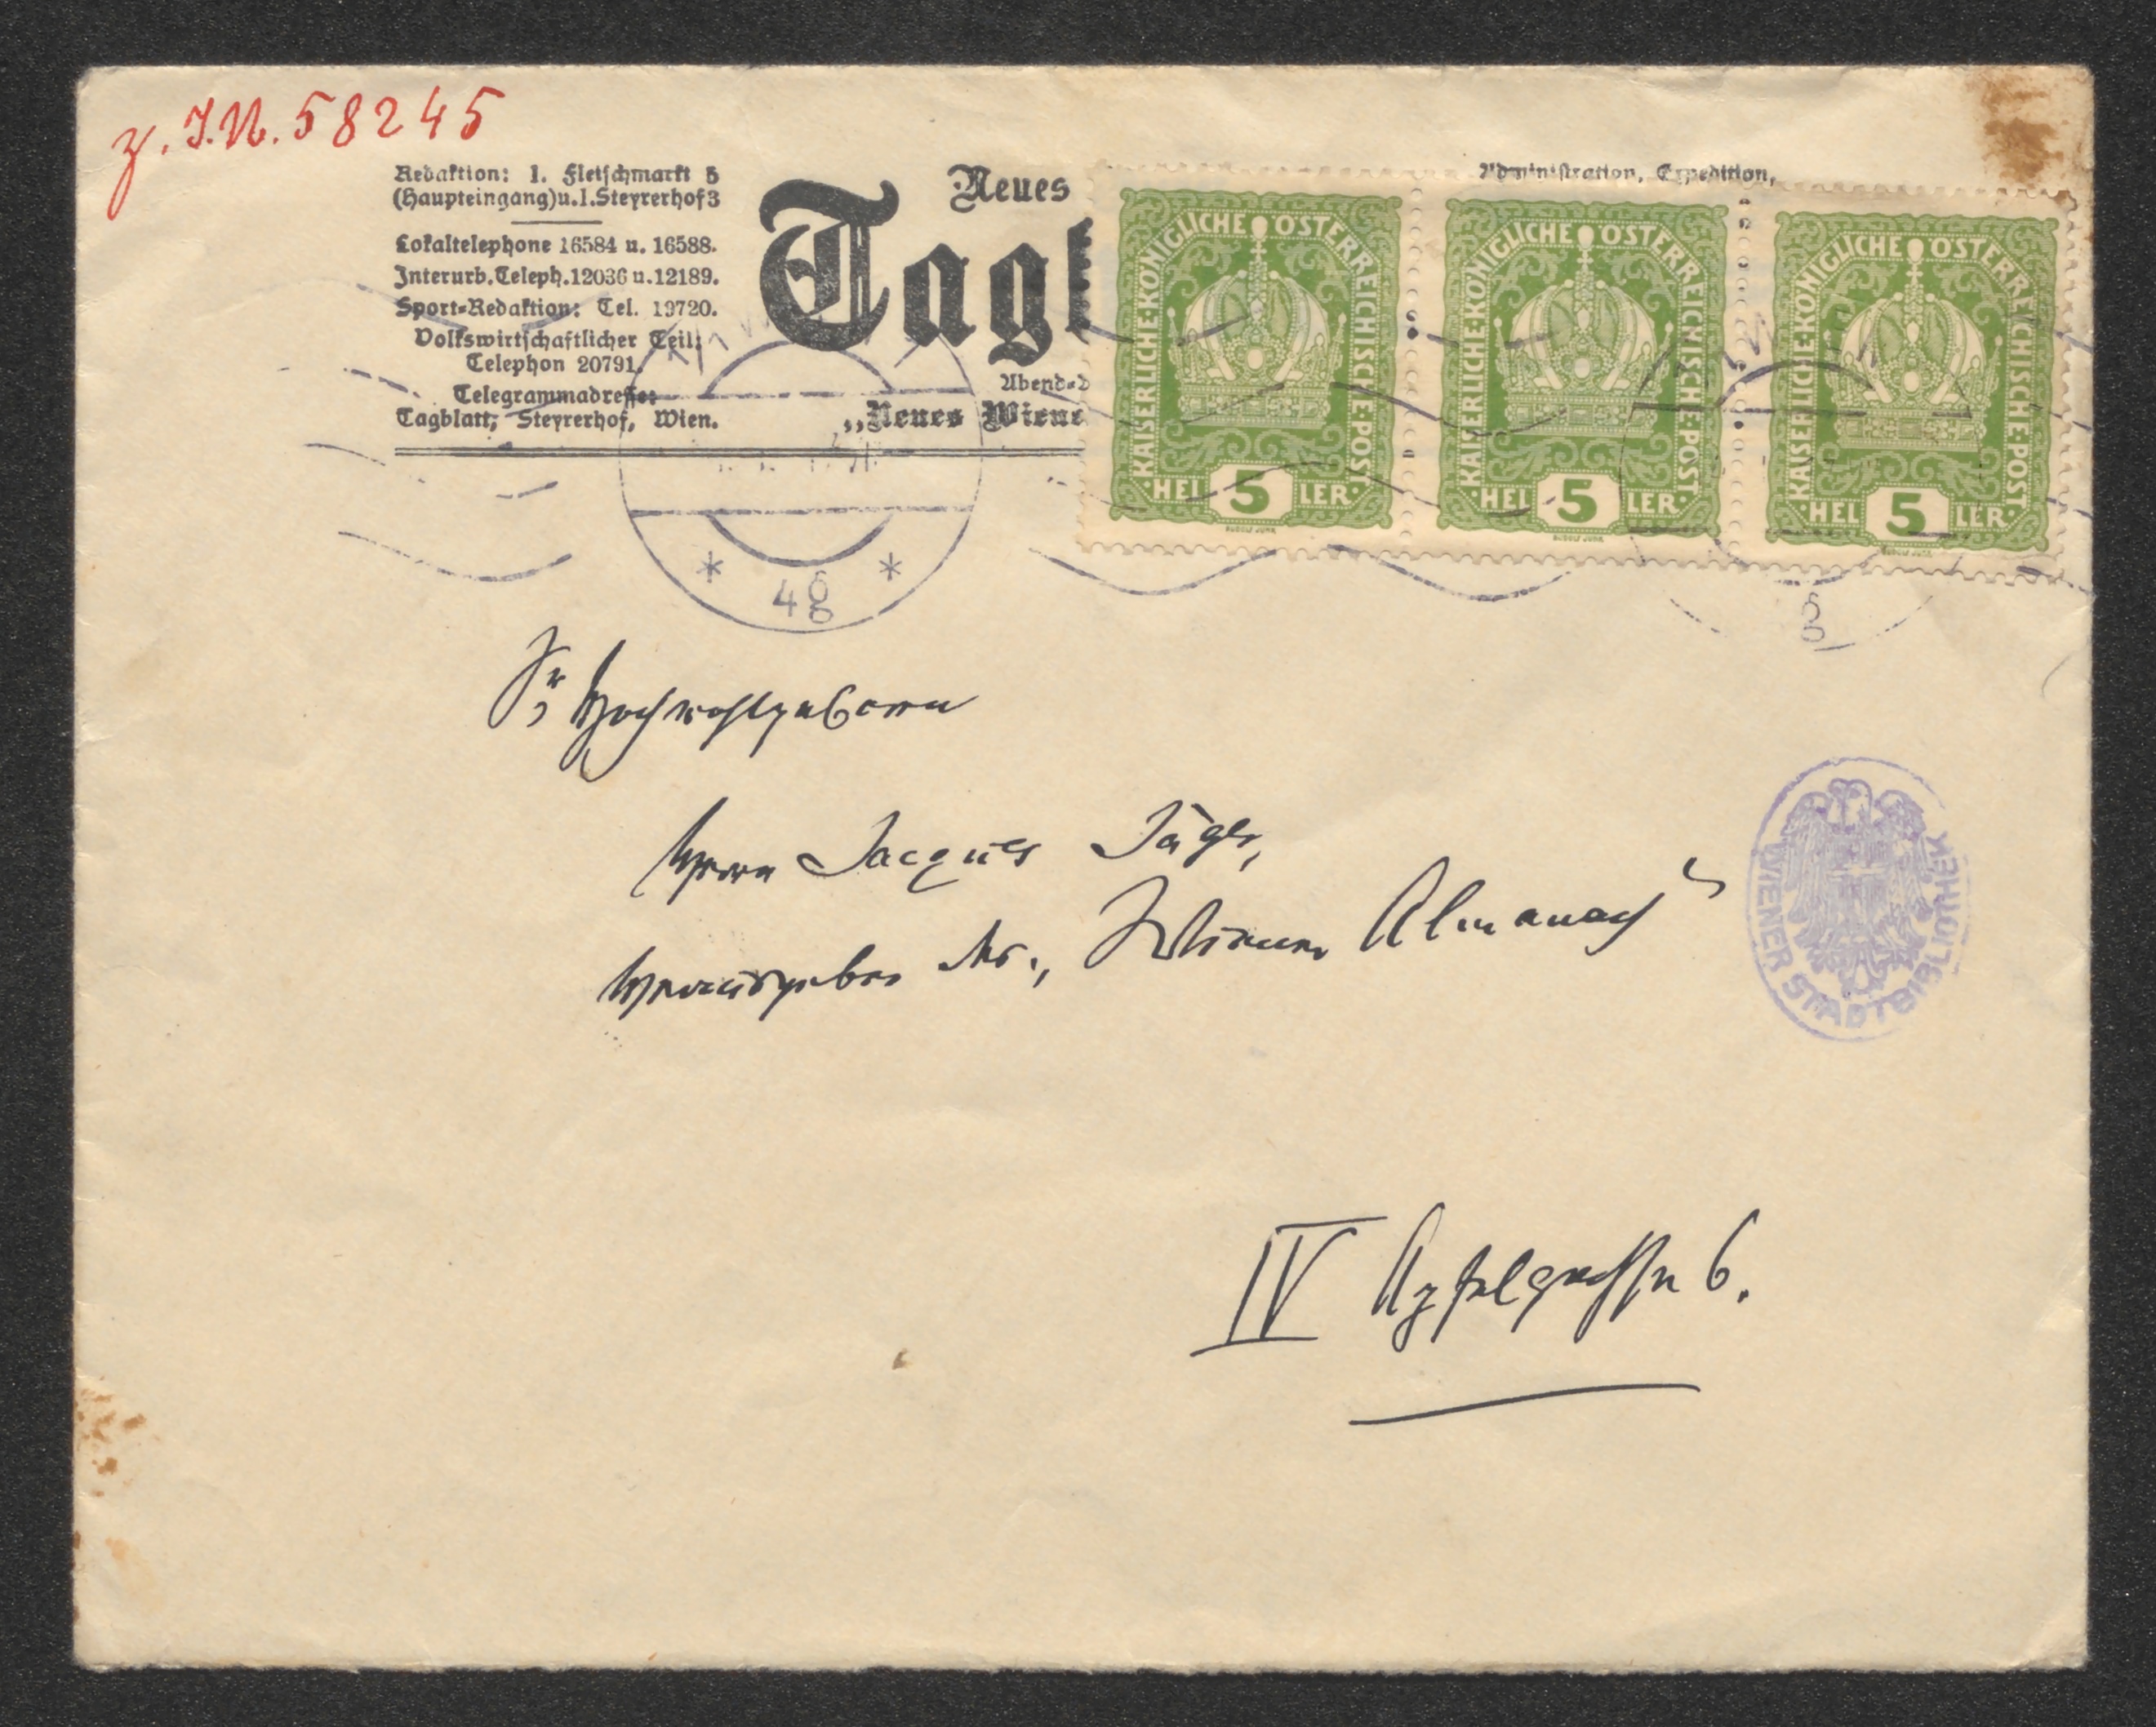 z. I.N. 58245
Redaktion: I. Fleischmarkt 5
(Haupteingang) u. I. Steyrerhof 3
Lokaltelephone 16584 u. 16588.
Interurb. Teleph. 12036 u. 12189.
Sport-Redaktion: Tel. 19720.
Volkswirtschaftlicher Teil:
Telephon 20791.
Telegrammadresse:
Tagblatt, Steyrerhof, Wien.
Neues
Tagb
Abend-
„Neues Wiene
Administration, Expedition,
KAISERLICHE·KÖNIGLICHE ÖSTERREICHISCHE·POST
·HEL 5 LER·
RUDOLF JUNK
KAISERLICHE·KÖNIGLICHE ÖSTERREICHISCHE·POST
·HEL 5 LER·
RUDOLF JUNK
KAISERLICHE·KÖNIGLICHE ÖSTERREICHISCHE·POST
·HEL 5 LER·
RUDOLF JUNK
* 4g *
Sr Hochwohlgeboren
Herrn Jacques Jäger,
Herausgeber des „Wiener Almanach“
WIENER STADTBIBLIOTHEK
IV Apfelgasse 6.